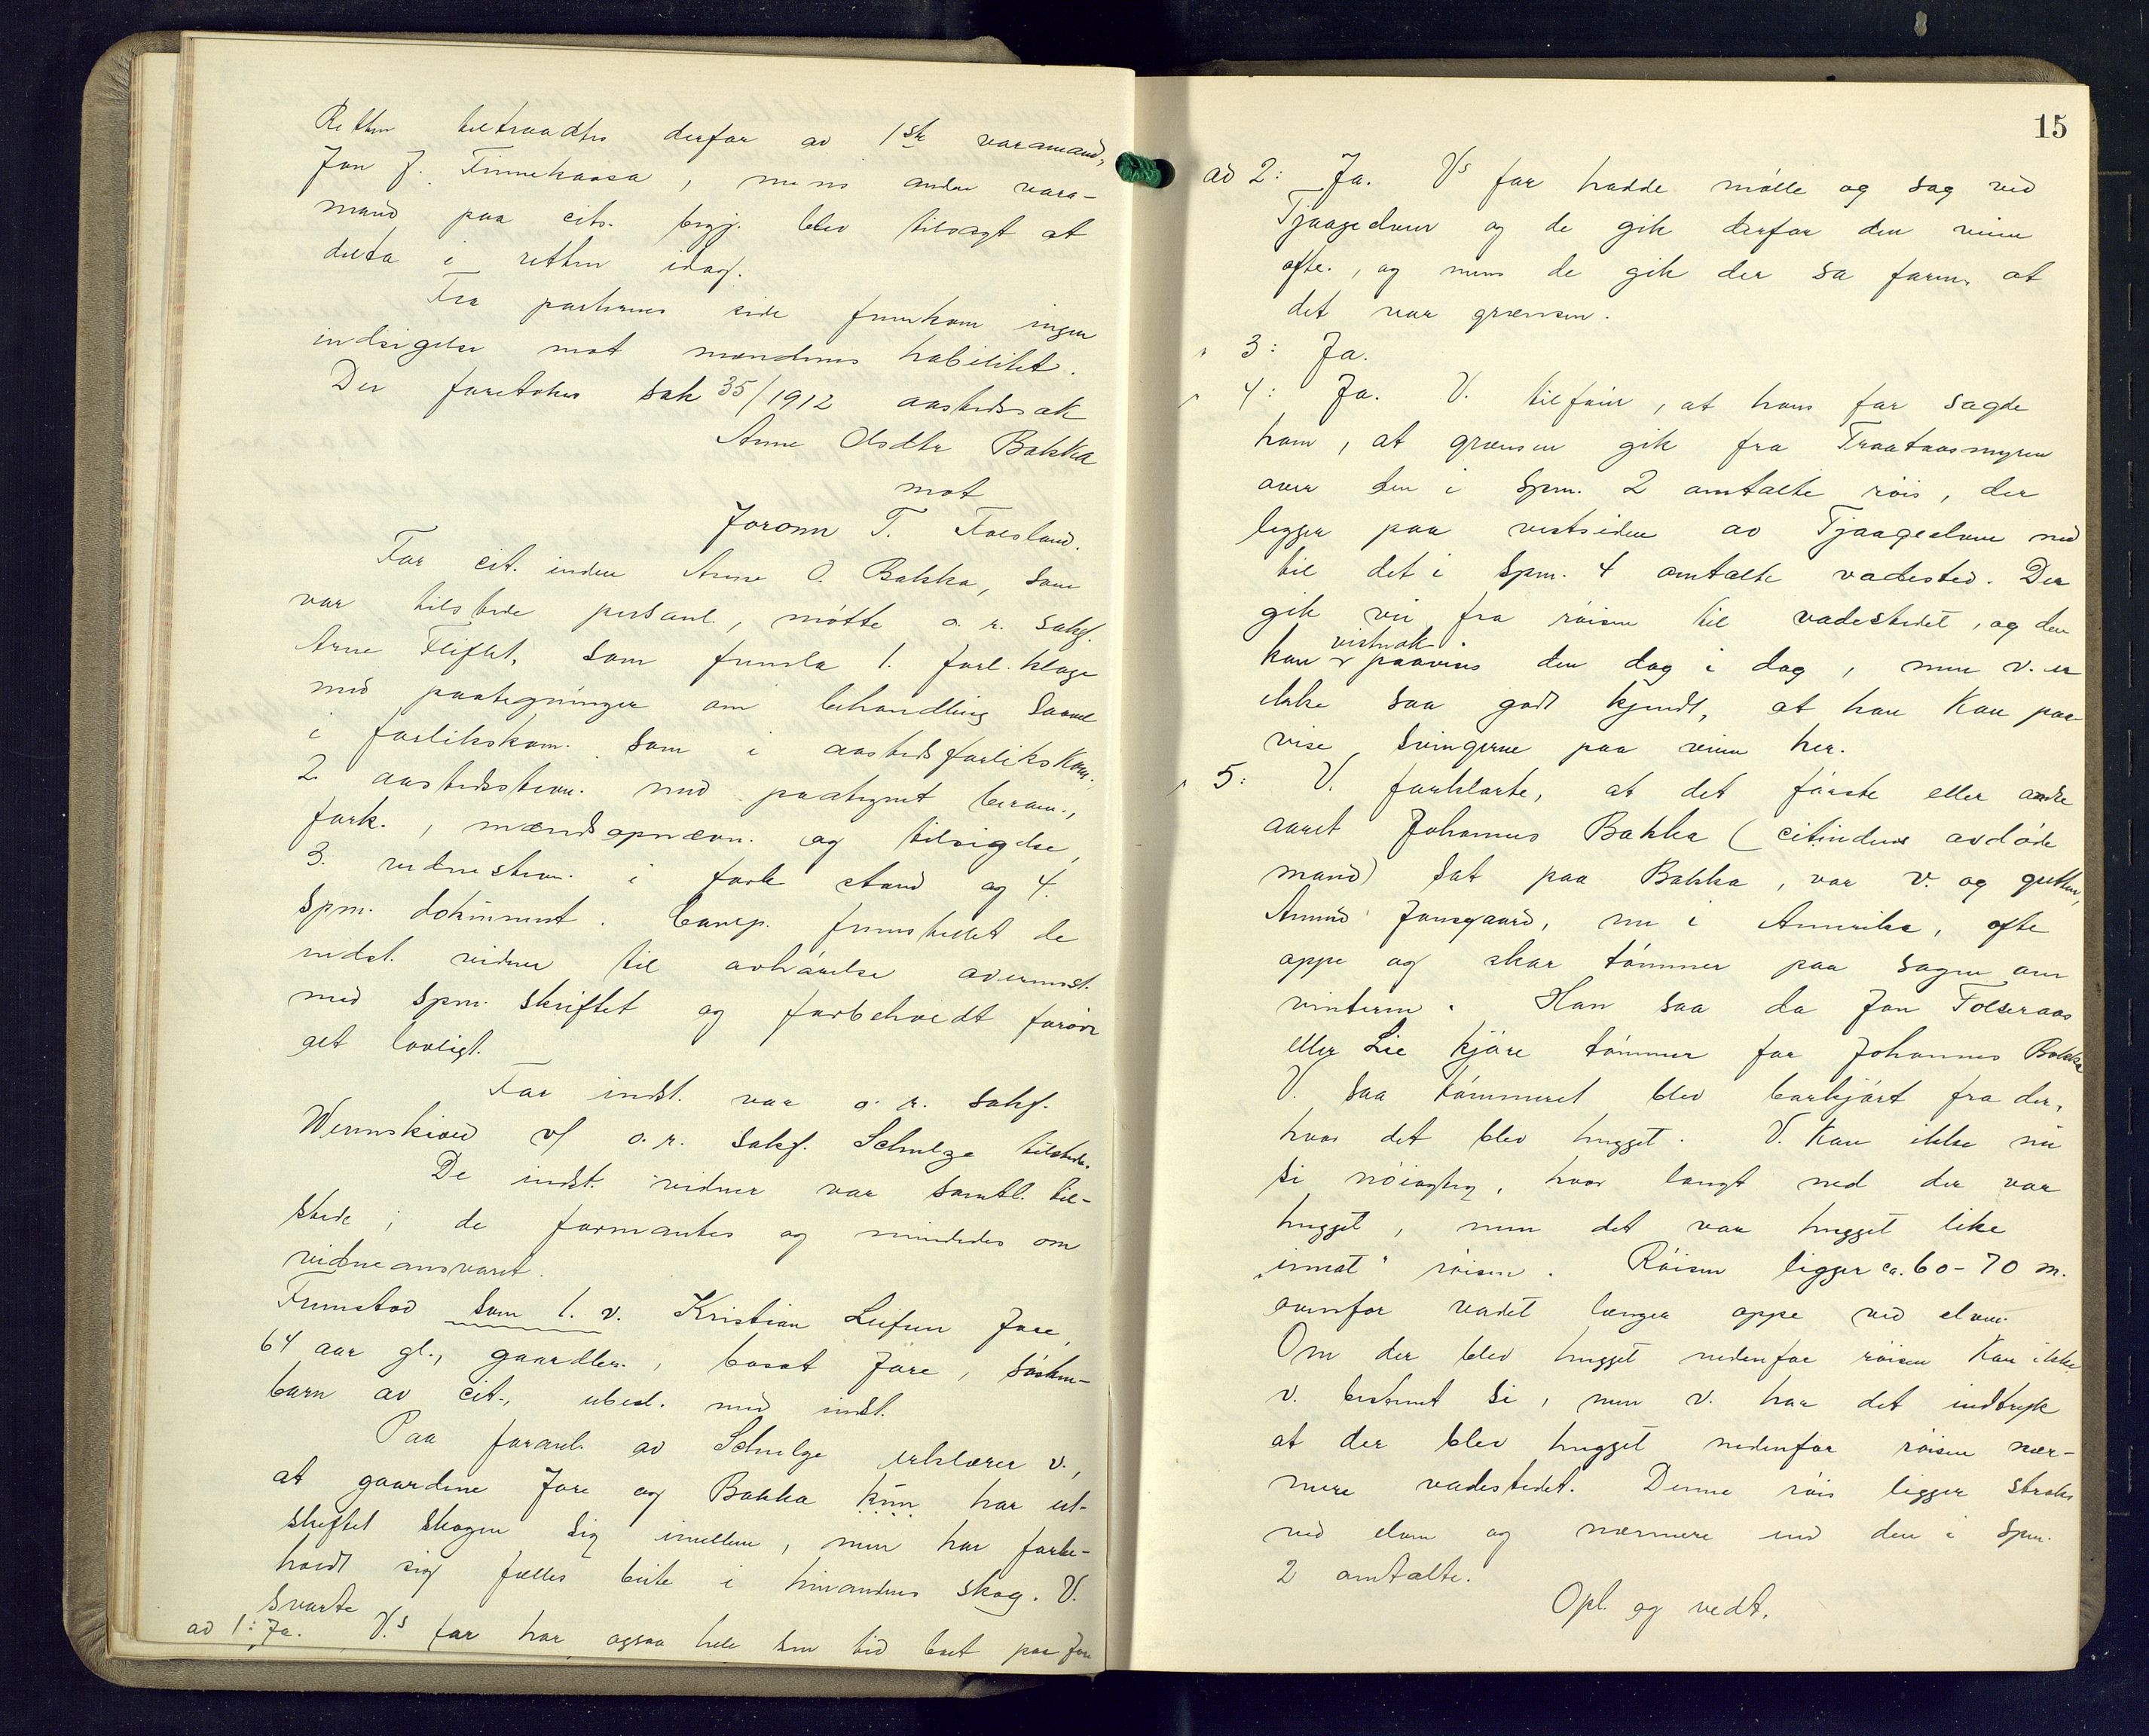 Retten tiltraadtes derfor av 1ste varamand,
Jon J. Finnekaasa, mens andre vara-
mand paa cits. begj. blev tilsagt at
delta i retten idag.
Fra parternes side fremkom ingen
indsigelse mot mændenes habilitet.
Der foretokes sak 35/1912 aastedssak
Anne Olsdtr Bakka
mot
Joronn T. Folsland.
For cit.inden Anne O. Bakka, som
var tilstede personl., møtte o. r. sakf.
Arne Fliflet, som fremla 1. forl. klage
med paategninger om behandling saavel
i forlikskom. som i aastedsforlikskom.,
2. aastedsstevn. med paategnet beram.,
fork., mændsopnævn. og tilsigelse,
3. vidnestevn. i fork. stand og 4.
spm. dokument. Comp. fremstillet de
indst. vidner til avhørelse overenst.
med spm. skriftet og forbeholdt forøvr.
alt lovligt.
For indst. var o. r. sakf.
Wennskiøld v/ o. r. sakf. Schulze tilstede.
De indst. vidner var samtl. til-
stede; de formantes og mindedes om
vidneansvaret.
Fremstod som 1. v. Kristian Leifsen Jore,
64 aar gl., gaardbr., bosat Jore, søsken-
barn av cit., ubesl. med indst.
Paa foranl. av Schulze erklærer v.,
at gaardene Jore og Bakka kun har ut-
skiftet skogen sig imellem, men har forbe-
holdt sig fælles beite i hinandens skog. V.
svarte
ad 1: Ja. V.s far har ogsaa hele sin tid bodt paa Jore
15
ad 2: Ja. Vs far hadde mølle og sag ved
Tjaageelven og de gik derfor den veien
ofte, og mens de gik der sa faren, at
det var grænsen.
" 3: Ja.
" 4: Ja. V. tilføier, at hans far sagde
ham, at grænsen gik fra Traataasmyren
over den i spm. 2 omtalte røis, der
ligger paa vestsiden av Tjaageelven ned
til det i spm. 4 omtalte vadested. Der
gik vei fra røisen til vadestedet, og den
vistnok
kan paavises den dag i dag, men v. er
ikke saa godt kjendt, at han kan paa-
vise svingerne paa veien her.
" 5: V. forklarte, at det første eller andre
aaret Johannes Bakka (citindens avdøde
mand) sat paa Bakka, var v. og gutten,
Amund Jonsgaard, nu i Amerika, ofte
oppe og skar tømmer paa sagen om
vinteren. Han saa da Jon Folseraas
eller Lie kjøre tømmer for Johannes Bakka
V. saa tømmeret blev borkjørt fra der,
hvor det blev hugget. V. kan ikke nu
si nøiagtig, hvor langt ned der var
hugget, men det var hugget like
„inmot" røisen. Røisen ligger ca. 60-70 m.
ovenfor vadet længer oppe ved elven.
Om der blev hugget nedenfor røisen kan ikke
v. bestemt si, men v. har det indtryk
at der blev hugget nedenfor røisen nær-
mere vadestedet. Denne røis ligger straks
ved elven og nærmere end den i spm.
2 omtalte.
Opl. og vedt.